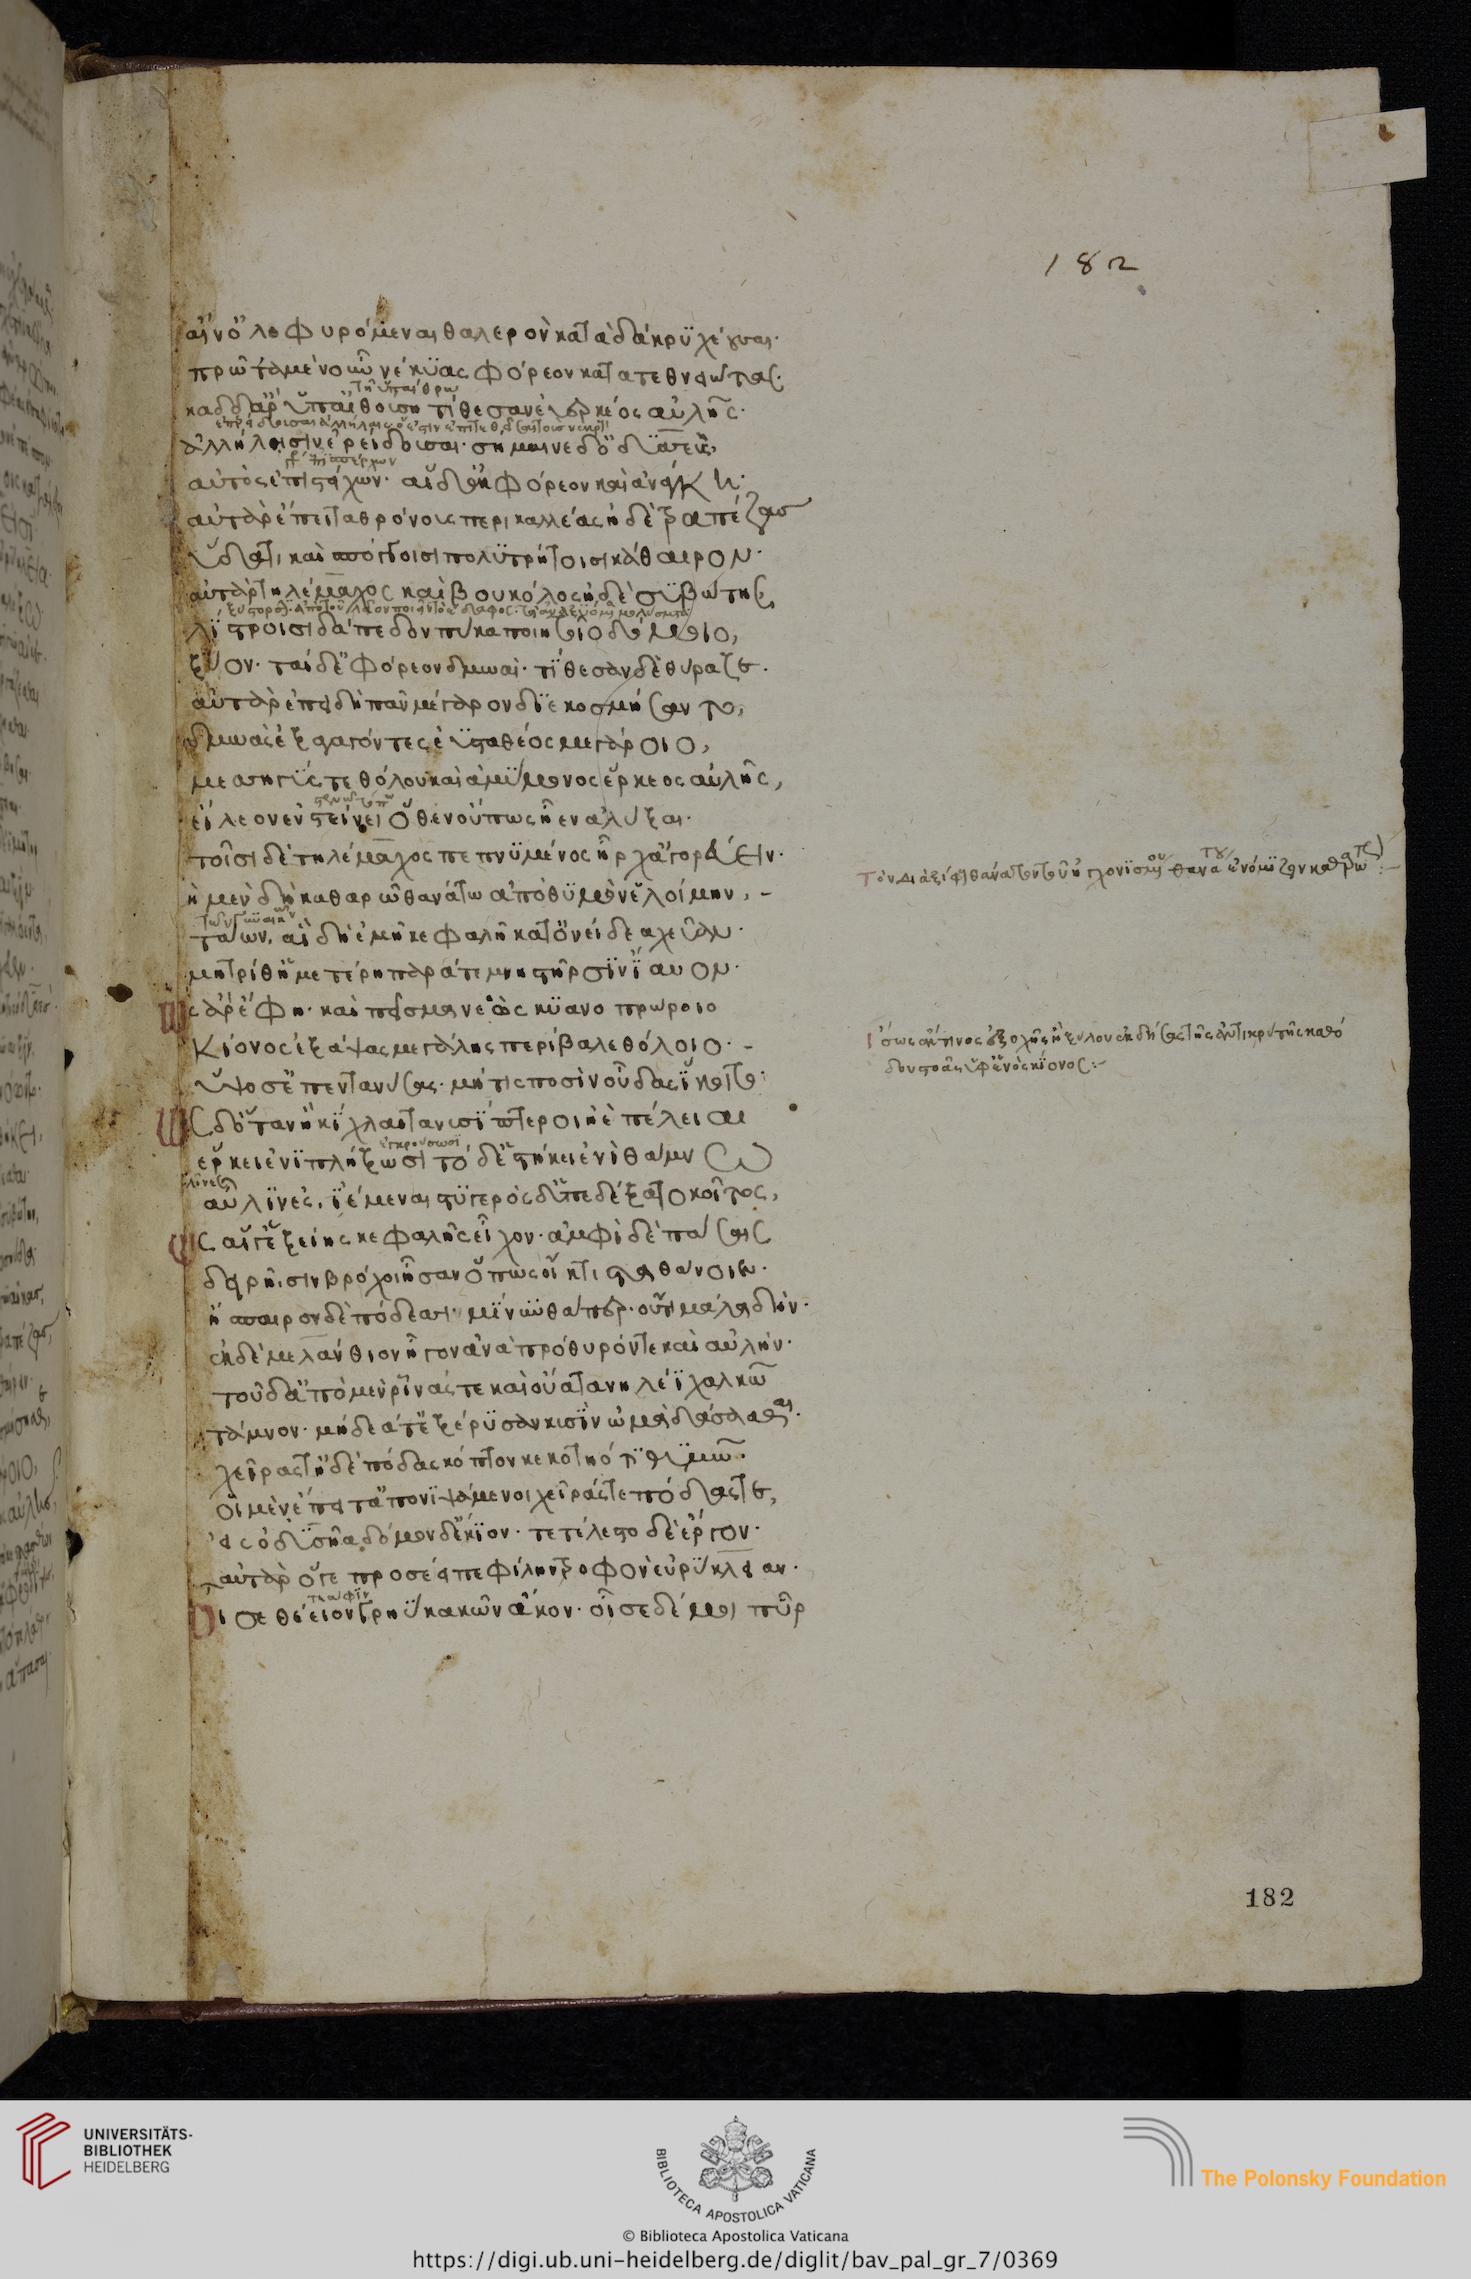 182
αἴν' ὀλοφυρόμεναι θαλερὸν κατὰ δάκρυ χέουσαι·
πρῶτα μὲν οὖν νέκυας φόρεον κατατεθνειῶτας·
τῆ ὑπαίθρω
καδδ' ἄρ' ὑπ' αἰθούση τίθεσαν εὐερκέος αὐλῆς·
ἀλλήλοισιν ἐρείδουσαι· σήμαινε δ' ὀδυσσεὺς,
αὐτὸς ἐπισπέρχων· αἱ δ' ἐκφόρεον καὶ ἀνάγκη·
αὐτὰρ ἔπειτα θρόνους περικαλλέας ἠδὲ τραπέζας
ὕδατι καὶ σπόγγοισι πολυτρήτοισι κάθαιρον·
αὐτὰρ τηλέμαχος καὶ βουκόλος ἠδὲ συβώτης,
λίστροισι δάπεδον πύκα ποιητοῖο δόμοιο,
ξύον· ταὶ δ' ἐφόρεον δμωαί· τίθεσαν δὲ θύραζε.
αὐτὰρ ἐπειδὴ πᾶν μέγαρον διεκοσμήσαντο,
δμωὰς ἐξαγαγόντες ἐϋσταθέος μεγάροιο,
μεσσηγύς τε θόλου καὶ ἀμύμονος ἕρκεος αὐλῆς,
εἴλεον ἐν στείνει ὅθεν οὔπως ἦεν ἀλύξαι·
τοῖσι δὲ τηλέμαχος πεπνυμένος ἦρχ' ἀγορεύειν·
μὴ μὲν δὴ καθαρῶ θανάτω ἀπὸ θυμὸν ἑλοίμην, –
τάων, αἳ δὴ ἐμῆ κεφαλῆ κατ' ὀνείδεα χεῦαν·
μητρί θ' ἡμετέρη παρά τε μνηστῆρσιν ἴαυον·
ὣς ἄρ' ἔφη· καὶ πεῖσμα νεὸς κυανοπρώροιο
κίονος ἐξάψας μεγάλης περίβαλε θόλοιο· –
ὑψόσ' ἐπεντανύσας· μήτις ποσὶν οὖδας ἵκοιτο·
ὡς δ' ὅταν ἢ κίχλαι τανυσίπτεροι ἠὲ πέλειαι
ἐγκρούσωσι
ἕρκει ἐνιπλήξωσι τό θ' ἑστήκει ἐνὶ θάμνω
αὖλιν ἐς, ἱέμεναι στυγερὸς δ' ὑπεδέξατο κοῖτος,
ὣς αἵ γ' ἑξείης κεφαλὰς εἶχον· ἀμφὶ δὲ πάσαις
δειρῆσιν βρόχοι ἦσαν ὅπως οἴκτιστα θάνοιεν·
ἤσπαιρον δὲ πόδεσσι· μίνυνθά περ· οὔτι μάλα δήν·
ἐκ δὲ μελάνθιον ἦγον ἀνὰ πρόθυρόν τε καὶ αὐλήν·
τοῦ δ' ἀπὸ μὲν ῥῖνάς τε καὶ οὔατα νηλέϊ χαλκῶ
τάμνον· μήδεά τ' ἐξέρυσαν κυσὶν ὠμὰ δάσασθαι·
χεῖράς τ' ἠδὲ πόδας κόπτον κεκοτηότι θυμῶ·
οἱ μὲν ἔπειτ' ἀπονιψάμενοι χεῖράς τε πόδας τε,
εἰς ὀδυσῆα δόμονδε κίον· τετέλεστο δὲ ἔργον·
αὐτὰρ ὅγε προσέειπε φίλην τροφὸν εὐρύκλειαν·
οἶσε θέειον γρηῢ κακῶν ἄκος· οἶσε δέ μοι πῦρ
ἴσως ἄν τινος ἐξοχῆς ἢ ξύλου ἐκδήσας τῆς ἀντικρὺ τῆς καθό
δου στοᾶς ὑφ' ἑνὸς κίονος:–
182
UNIVERSITÄTS-
BIBLIOTHEK
HEIDELBERG
BIBLIOTECA APOSTOLICA VATICANA
The Polonsky Foundation
© Biblioteca Apostolica Vaticana
https://digi.ub.uni-heidelberg.de/diglit/bav_pal_gr_7/0369